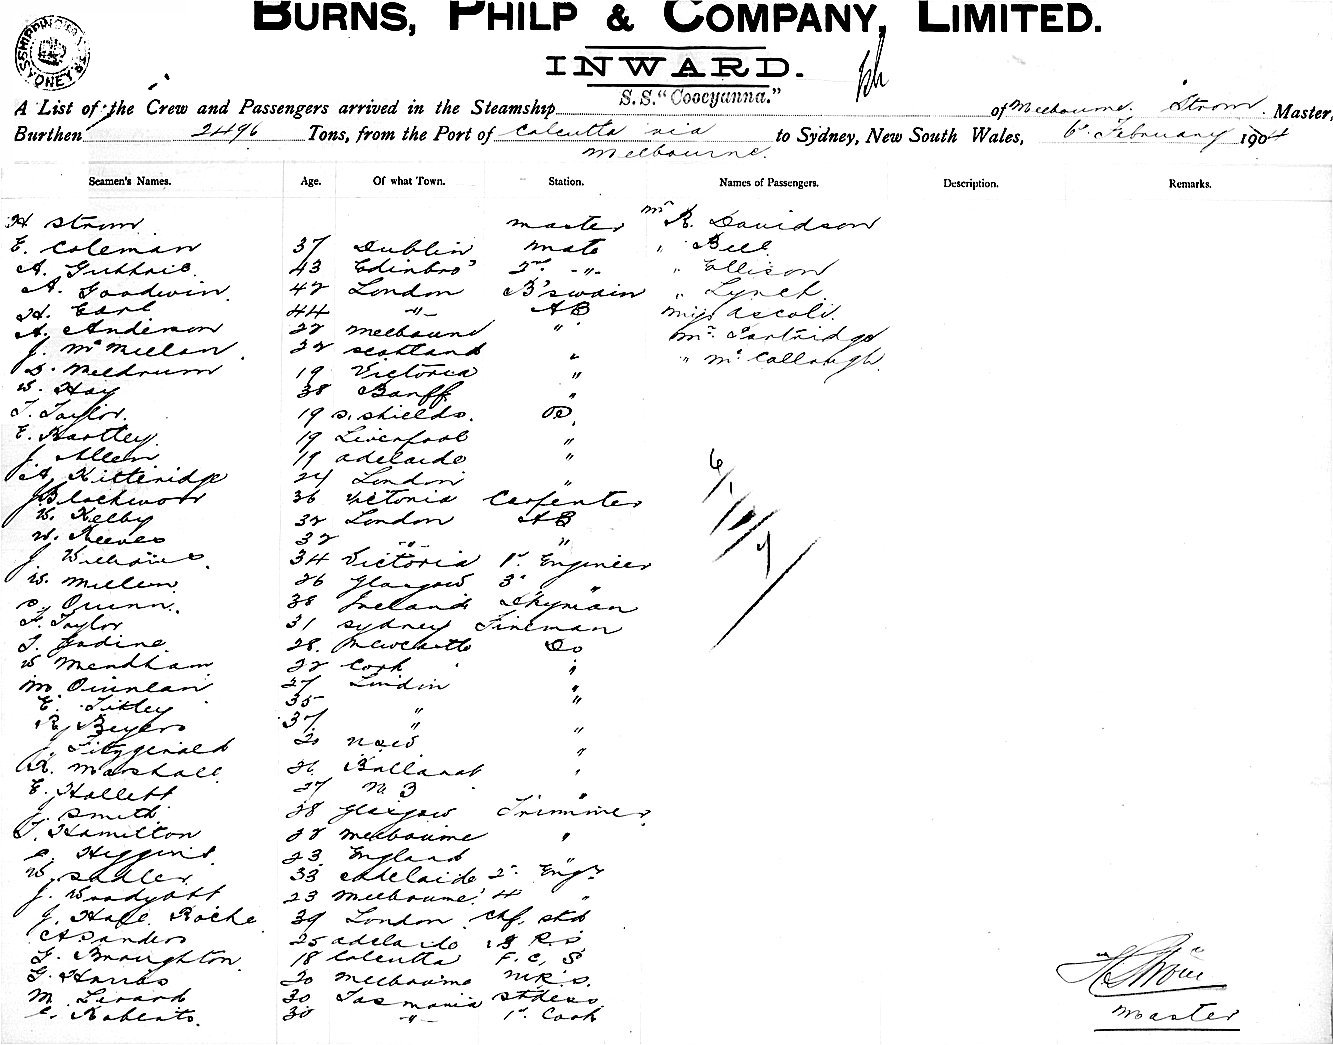 BURNS, PHILP & COMPANY, LIMITED.
INWARD.
SHIPPING SYDNEY
A List of the Crew and Passengers arrived in the Steamship S.S. "Cooeyanna." of Melbourne. Strom Master,
Burthen 2496 Tons, from the Port of Calcutta via Melbourne. to Sydney, New South Wales, 6th February 1904
Seamen's Names. Age. Of what Town. Station. Names of Passengers. Description. Remarks.
H Strom master Mr R. Davidson
E. Coleman 37 Dublin mate " Bell
A. Guthrie 43 Edinbro' 2nd -"- " Ellison
A. Goodwin 42 London B'swain " Lynch
H. Earl 44 -"- AB Miss Ascoli
A. Anderson 22 Melbourne " Mr. Partridge
J. McMillan 32 Scotland " " McCallough
D. Meldrum 19 Victoria "
W. Hay 38 Banff "
T. Taylor 19 S. Shields. OS
E. Hartley 19 Liverpool "
J. Allen 19 Adelaide "
A. Kitteridge 24 London "
J Blackwood 36 Victoria Carpenter
W. Kelby 32 London AB
W. Reeves 32 -"- "
J. Williams 34 Victoria 1st Engineer
W. Millen 26 Glasgow 3rd "
Quinn 38 Ireland Dkyman
F. Taylor 31 Sydney Fireman
28 Newcastle Do
W Mendham 22 Cork "
M. Quinlan 27 London "
E. 35 " "
R. Beyers 37 " "
J. Fitzgerald 20 NSW "
R. Marshall 26 Ballarat "
E. Hallett 27 N. Z "
J. Smith 28 Glasgow Trimmer
T. Hamilton 22 Melbourne "
C. Higgins 23 England "
W. Sadler 33 Adelaide 2nd Engr
J. Woodyatt 23 Melbourne 4 "
J. Hall Roche 39 London Chf. Std
A Sanders 25 Adelaide
G. Broughton 18 Calcutta F. C. S
G. Harris 20 Melbourne M.R.S.
M. 30 Tasmania Stdess
C. Roberts 30 -"- 1st Cook
H Strom
Master